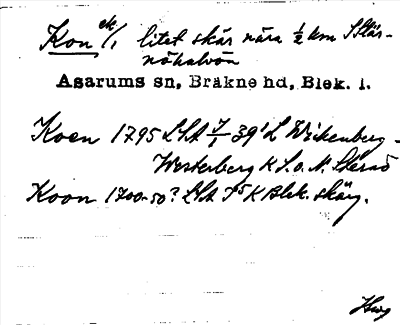 Kon ek. /1 litet skär nära ½ km S Stär-
nöhalvön
Asarums sn, Bräkne hd, Blek. l.
Koen 1795 LSA 39¹ L Wickenberg-
Westerberg K S. o. N. Stärnö
Koon 1700-50? LSA K Blek. skärg.